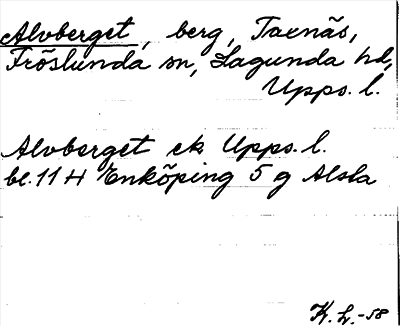 Alvberget, berg, Taxnäs,
Fröslunda sn, Lagunda hd,
Upps. l.
Alvberget ek Upps. l.
bl. 11 H Enköping 5 g Alsta
K. L. -58